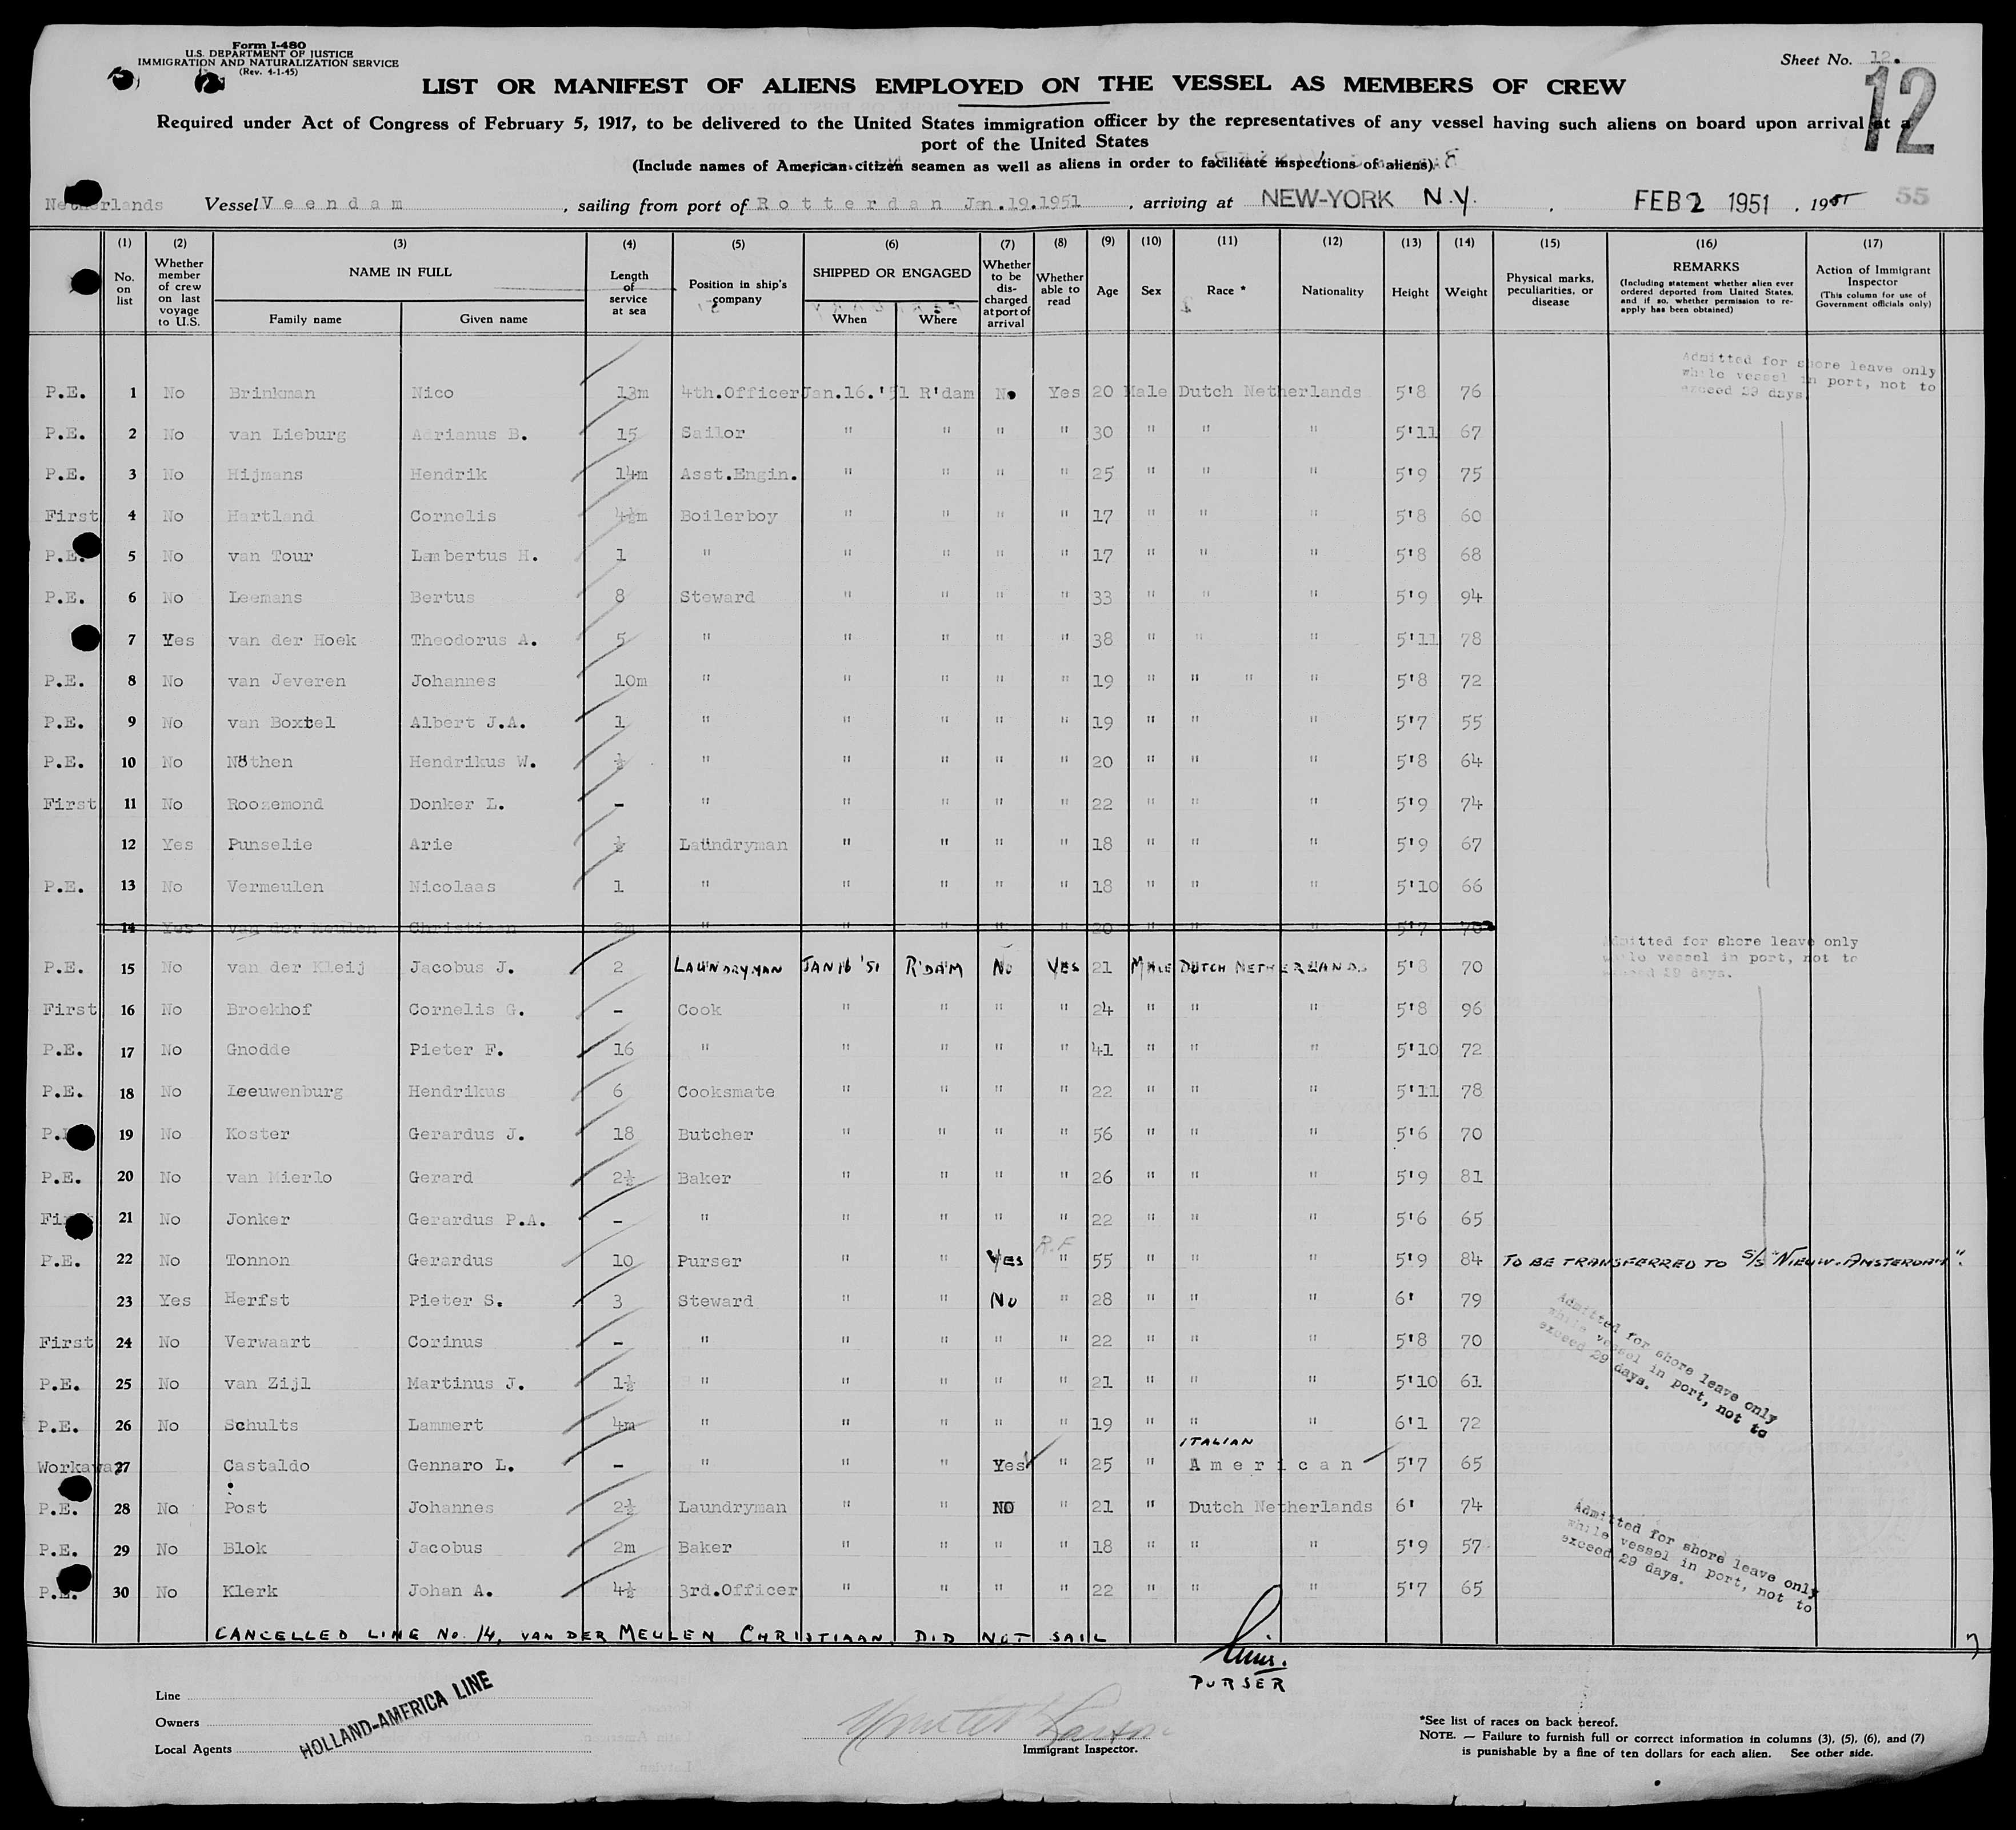 Form I-480
U.S. DEPARTMENT OF JUSTICE
IMMIGRATION AND NATURALIZATION SERVICE
(Rev. 4-1-45)
Sheet No. 12.
12
LIST OR MANIFEST OF ALIENS EMPLOYED ON THE VESSEL AS MEMBERS OF CREW
Required under Act of Congress of February 5, 1917, to be delivered to the United States immigration officer by the representatives of any vessel having such aliens on board upon arrival at a
port of the United States
(Include names of American citizen seamen as well as aliens in order to facilitate inspections of aliens)
Netherlands Vessel Veendam, sailing from port of Rotterdan Jan.19.1951, arriving at NEW-YORK N.Y. FEB 2 1951, 1951 55
(1) (2) (3) (4) (5) (6) (7) (8) (9) (10) (11) (12) (13) (14) (15) (16) (17)
No. on list
Whether member of crew on last voyage to U.S.
NAME IN FULL
Family name Given name
Length of service at sea
Position in ship's company
SHIPPED OR ENGAGED
When Where
Whether to be discharged at port of arrival
Whether able to read
Age Sex Race * Nationality Height Weight
Physical marks, peculiarities, or disease
REMARKS
(Including statement whether alien ever ordered deported from United States, and if so, whether permission to re-apply has been obtained)
Action of Immigrant Inspector
(This column for use of Government officials only)
Admitted for shore leave only
while vessel in port, not to
exceed 29 days.
P.E. 1 No Brinkman Nico 13m 4th.Officer Jan.16.'51 R'dam No Yes 20 Male Dutch Netherlands 5'8 76
P.E. 2 No van Lieburg Adrianus B. 15 Sailor " " " " 30 " " " 5'11 67
P.E. 3 No Hijmans Hendrik 14m Asst.Engin. " " " " 25 " " " 5'9 75
First 4 No Hartland Cornelis 4½m Boilerboy " " " " 17 " " " 5'8 60
P.E. 5 No van Tour Lambertus H. 1 " " " " " 17 " " " 5'8 68
P.E. 6 No Leemans Bertus 8 Steward " " " " 33 " " " 5'9 94
7 Yes van der Hoek Theodorus A. 5 " " " " " 38 " " " 5'11 78
P.E. 8 No van Jeveren Johannes 10m " " " " " 19 " " " " 5'8 72
P.E. 9 No van Boxtel Albert J.A. 1 " " " " " 19 " " " 5'7 55
P.E. 10 No Nöthen Hendrikus W. ½ " " " " " 20 " " " 5'8 64
First 11 No Roozemond Donker L. - " " " " " 22 " " " 5'9 74
12 Yes Punselie Arie ½ Laundryman " " " " 18 " " " 5'9 67
P.E. 13 No Vermeulen Nicolaas 1 " " " " " 18 " " " 5'10 66
14 Yes van der Meulen Christiaan 2m " " " " " 20 " " " 5'7 70
Admitted for shore leave only
while vessel in port, not to
exceed 29 days.
P.E. 15 No van der Kleij Jacobus J. 2 LAUNDRYMAN JAN 16 '51 R'DAM No YES 21 MALE DUTCH NETHERLANDS 5'8 70
First 16 No Broekhof Cornelis G. - Cook " " " " 24 " " " 5'8 96
P.E. 17 No Gnodde Pieter F. 16 " " " " " 41 " " " 5'10 72
P.E. 18 No Leeuwenburg Hendrikus 6 Cooksmate " " " " 22 " " " 5'11 78
P.E. 19 No Koster Gerardus J. 18 Butcher " " " " 56 " " " 5'6 70
P.E. 20 No van Mierlo Gerard 2½ Baker " " " " 26 " " " 5'9 81
First 21 No Jonker Gerardus P.A. - " " " " " 22 " " " 5'6 65
R.F
P.E. 22 No Tonnon Gerardus 10 Purser " " YES " 55 " " " 5'9 84 TO BE TRANSFERRED TO S/S "NIEUW-AMSTERDAM".
23 Yes Herfst Pieter S. 3 Steward " " No " 28 " " " 6' 79
First 24 No Verwaart Corinus - " " " " " 22 " " " 5'8 70
P.E. 25 No van Zijl Martinus J. 1½ " " " " " 21 " " " 5'10 61
P.E. 26 No Schults Lammert 4m " " " " " 19 " " " 6'1 72
Admitted for shore leave only
while vessel in port, not to
exceed 29 days.
ITALIAN
Workaway 27 Castaldo Gennaro L. - " " " Yes " 25 " American 5'7 65
P.E. 28 No Post Johannes 2½ Laundryman " " NO " 21 " Dutch Netherlands 6' 74
P.E. 29 No Blok Jacobus 2m Baker " " " " 18 " " " 5'9 57
P.E. 30 No Klerk Johan A. 4½ 3rd.Officer " " " " 22 " " " 5'7 65
Admitted for shore leave only
while vessel in port, not to
exceed 29 days.
CANCELLED LINE No. 14, VAN DER MEULEN CHRISTIAAN DID NOT SAIL
PURSER
Line
Owners
Local Agents
HOLLAND-AMERICA LINE
Immigrant Inspector.
*See list of races on back hereof.
NOTE. — Failure to furnish full or correct information in columns (3), (5), (6), and (7)
is punishable by a fine of ten dollars for each alien. See other side.